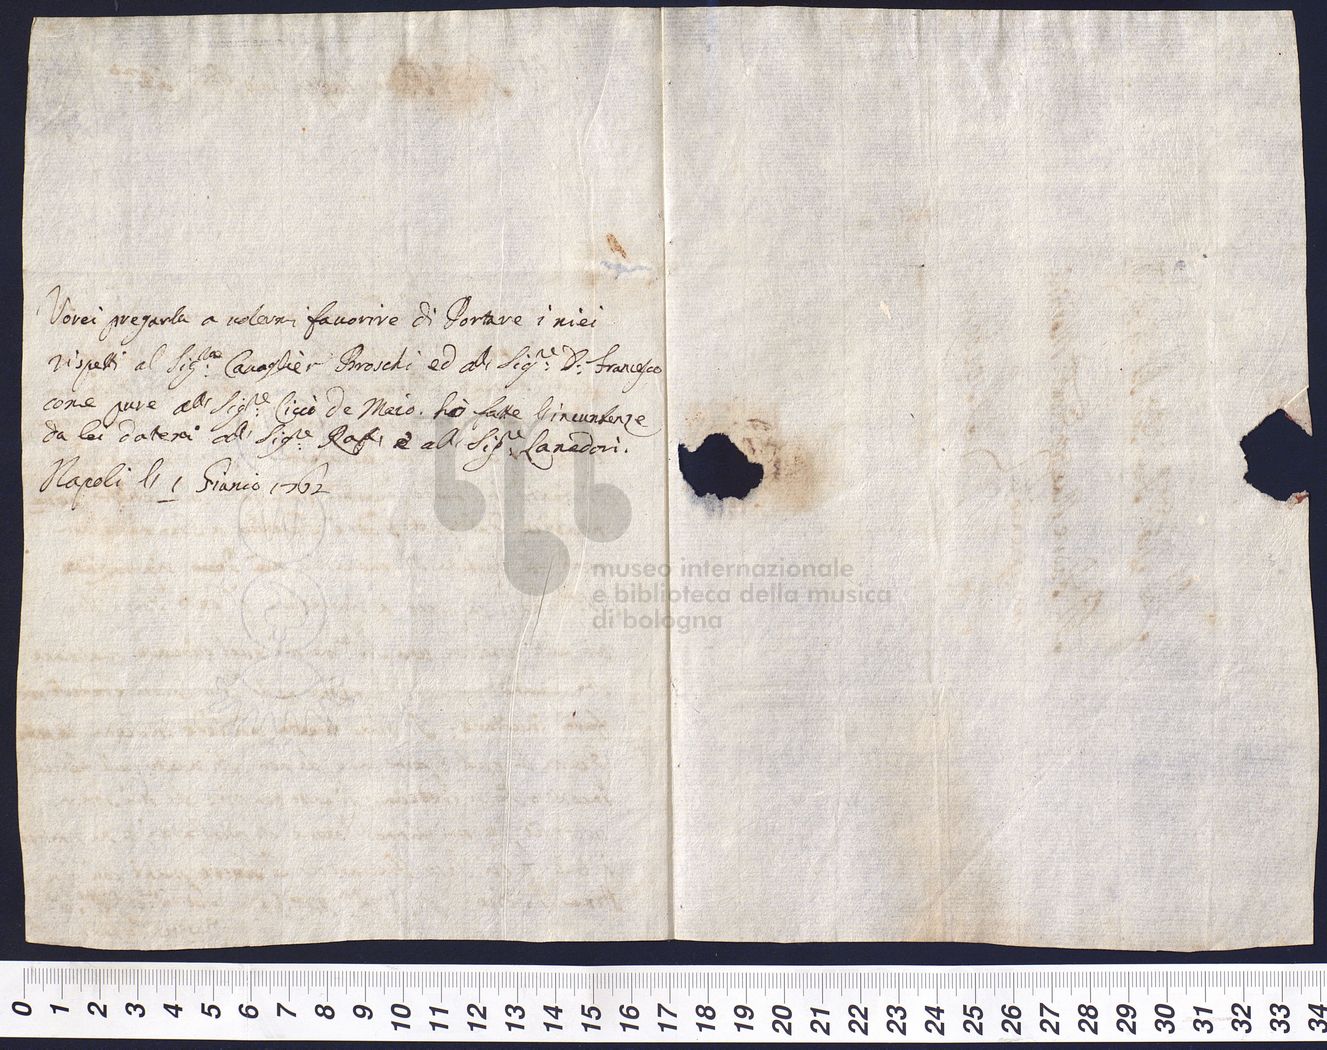 Vorei pregarla a volermi favorire di Portare i miei
rispetti al Sig:re Cavaglièr Broschi ed all Sig:re D: Francesco
come pure all Sig:re Ciccio de Maio. hò fatte l'incunbenze
da lei datemi all Sig:re Raff è all Sig:re
Napoli li 1 Gianio 1762
museo internazionale
e biblioteca della musica
di bologna
0 1 2 3 4 5 6 7 8 9 10 11 12 13 14 15 16 17 18 19 20 21 22 23 24 25 26 27 28 29 30 31 32 33 34